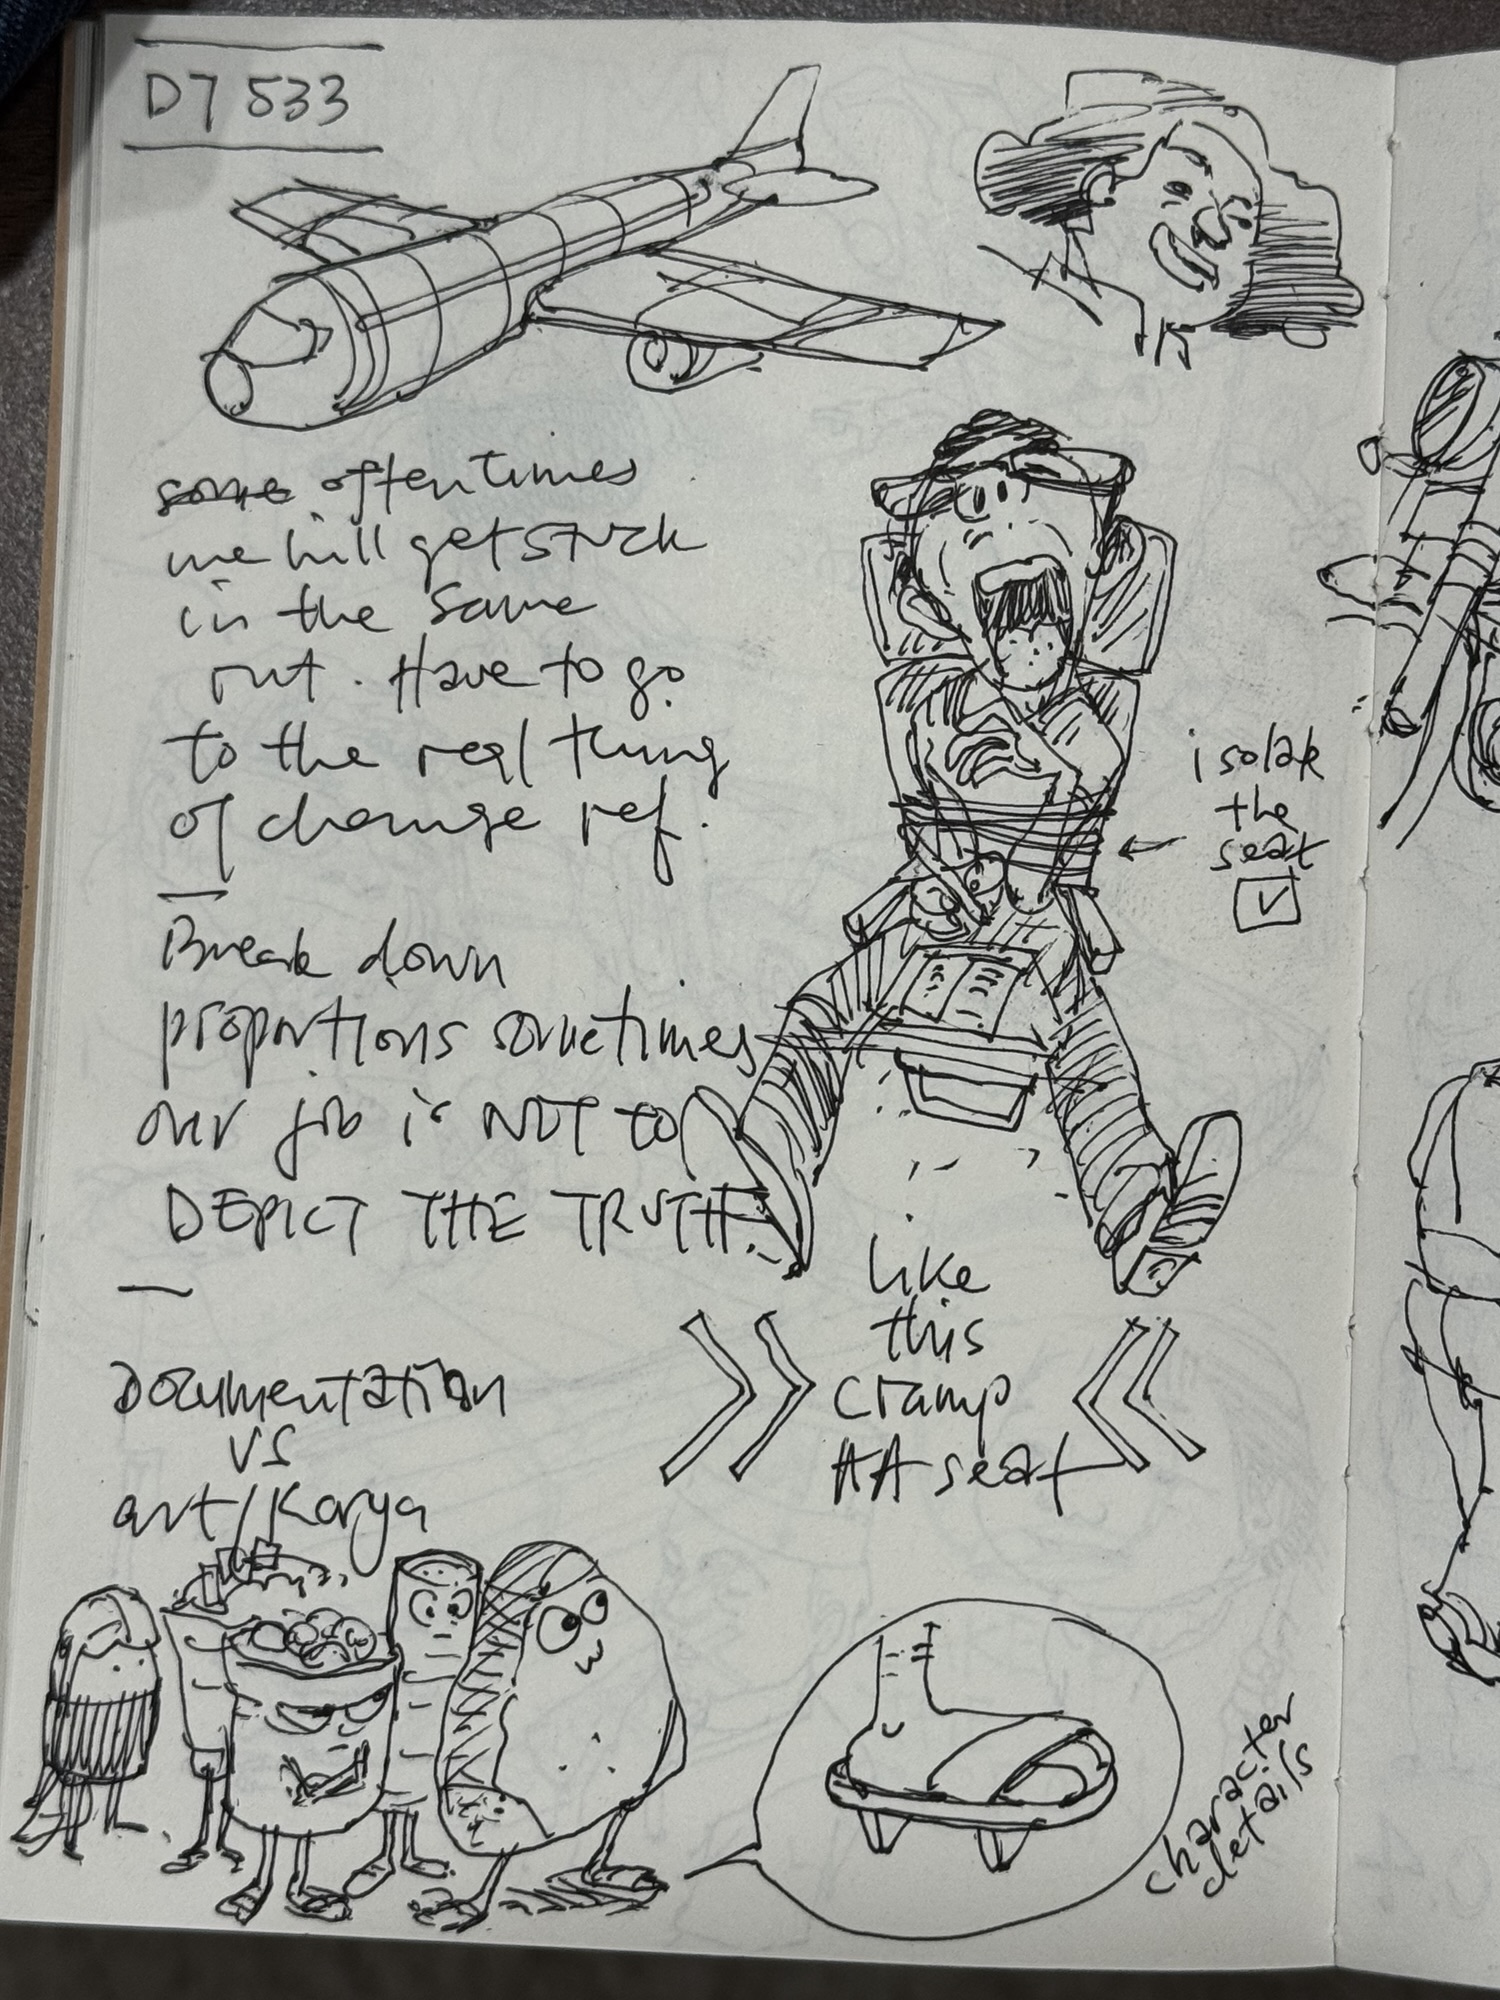 D7 533
some often times
we will get stuck
in the same
rut. Have to go
to the real thing
of change ref.
Break down
proportions sometimes
our job is NOT to
DEPICT THE TRUTH.
Documentation
vs
art/Karya
isolate
the
seat
like
this
cramp
AA seat
character
details